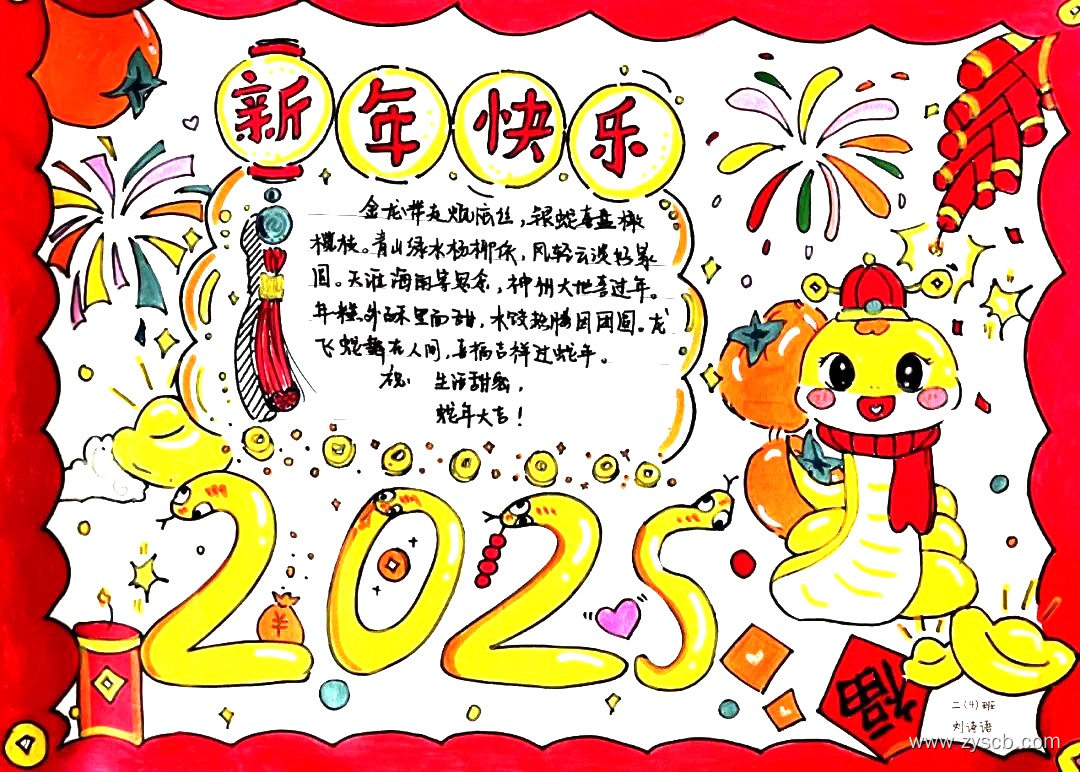 新年快乐
金龙带走旧底,银蛇喜盘橄
榄枝。青山绿水杨柳依,风轻云淡好景
圆。天涯海南寄思念,神州大地喜过年。
年糕外酥里面甜,水饺热腾团团圆。龙
飞蛇舞在人间,喜福吉祥过蛇年。
祝 生活甜蜜,
蛇年大吉!
2025
¥
福
二(4)班
刘诗语
www.zyscb.com